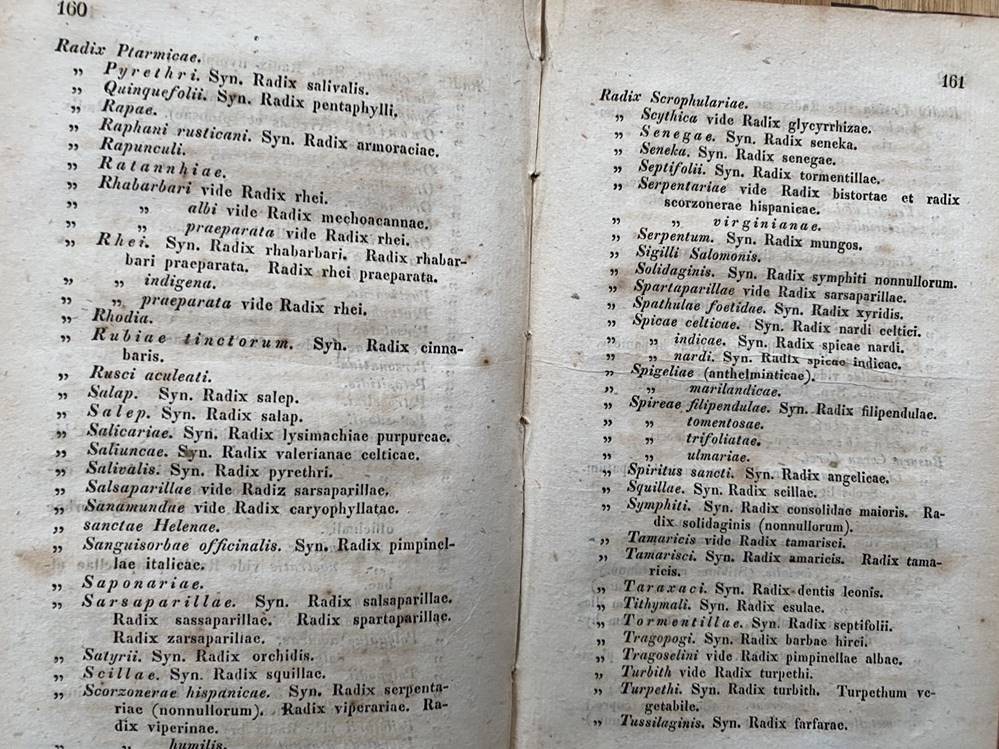 160
Radix Ptarmicae.
„ Pyrethri. Syn. Radix salivalis.
„ Quinquefolii. Syn. Radix pentaphylli,
„ Rapae.
„ Raphani rusticani. Syn. Radix armoraciae.
„ Rapunculi.
„ Ratannhiae.
„ Rhabarbari vide Radix rhei.
„ „ albi vide Radix mechoacannae.
„ „ praeparata vide Radix rhei.
„ Rhei. Syn. Radix rhabarbari. Radix rhabar-
bari praeparata. Radix rhei praeparata.
„ „ indigena.
„ „ praeparata vide Radix rhei.
„ Rhodia.
„ Rubiae tinctorum. Syn. Radix cinna-
baris.
„ Rusci aculeati.
„ Salap. Syn. Radix salep.
„ Salep. Syn. Radix salap.
„ Salicariae. Syn. Radix lysimachiae purpureae.
„ Saliuncae. Syn. Radix valerianae celticae.
„ Salivalis. Syn. Radix pyrethri.
„ Salsaparillae vide Radiz sarsaparillae,
„ Sanamundae vide Radix caryophyllatae.
„ sanctae Helenae.
„ Sanguisorbae officinalis. Syn. Radix pimpinel-
lae italicae.
„ Saponariae.
„ Sarsaparillae. Syn. Radix salsaparillae.
Radix sassaparillae. Radix spartaparillae.
Radix zarsaparillae.
„ Satyrii. Syn. Radix orchidis.
„ Scillae. Syn. Radix squillae.
„ Scorzonerae hispanicae. Syn. Radix serpenta-
riae (nonnullorum). Radix viperariae. Ra-
dix viperinae.
„ „ humilis.
161
Radix Scrophulariae.
„ Scythica vide Radix glycyrrhizae.
„ Senegae. Syn. Radix seneka.
„ Seneka. Syn. Radix senegae.
„ Septifolii. Syn. Radix tormentillae.
„ Serpentariae vide Radix bistortae et radix
scorzonerae hispanicae.
„ „ virginianae.
„ Serpentum. Syn. Radix mungos.
„ Sigilli Salomonis.
„ Solidaginis. Syn. Radix symphiti nonnullorum.
„ Spartaparillae vide Radix sarsaparillae.
„ Spathulae foetidae. Syn. Radix xyridis.
„ Spicae celticae. Syn. Radix nardi celtici.
„ „ indicae. Syn. Radix spicae nardi.
„ „ nardi. Syn. Radix spicae indicae.
„ Spigeliae (anthelminticae).
„ „ marilandicae.
„ Spireae filipendulae. Syn. Radix filipendulae.
„ „ tomentosae.
„ „ trifoliatae.
„ „ ulmariae.
„ Spiritus sancti. Syn. Radix angelicae.
„ Squillae. Syn. Radix scillae.
„ Symphiti. Syn. Radix consolidae maioris. Ra-
dix solidaginis (nonnullorum).
„ Tamaricis vide Radix tamarisci.
„ Tamarisci. Syn. Radix amaricis. Radix tama-
ricis.
„ Taraxaci. Syn. Radix dentis leonis.
„ Tithymali. Syn. Radix esulae.
„ Tormentillae. Syn. Radix septifolii.
„ Tragopogi. Syn. Radix barbae hirci.
„ Tragoselini vide Radix pimpinellae albae.
„ Turbith vide Radix turpethi.
„ Turpethi. Syn. Radix turbith. Turpethum ve-
getabile.
„ Tussilaginis. Syn. Radix farfarae.